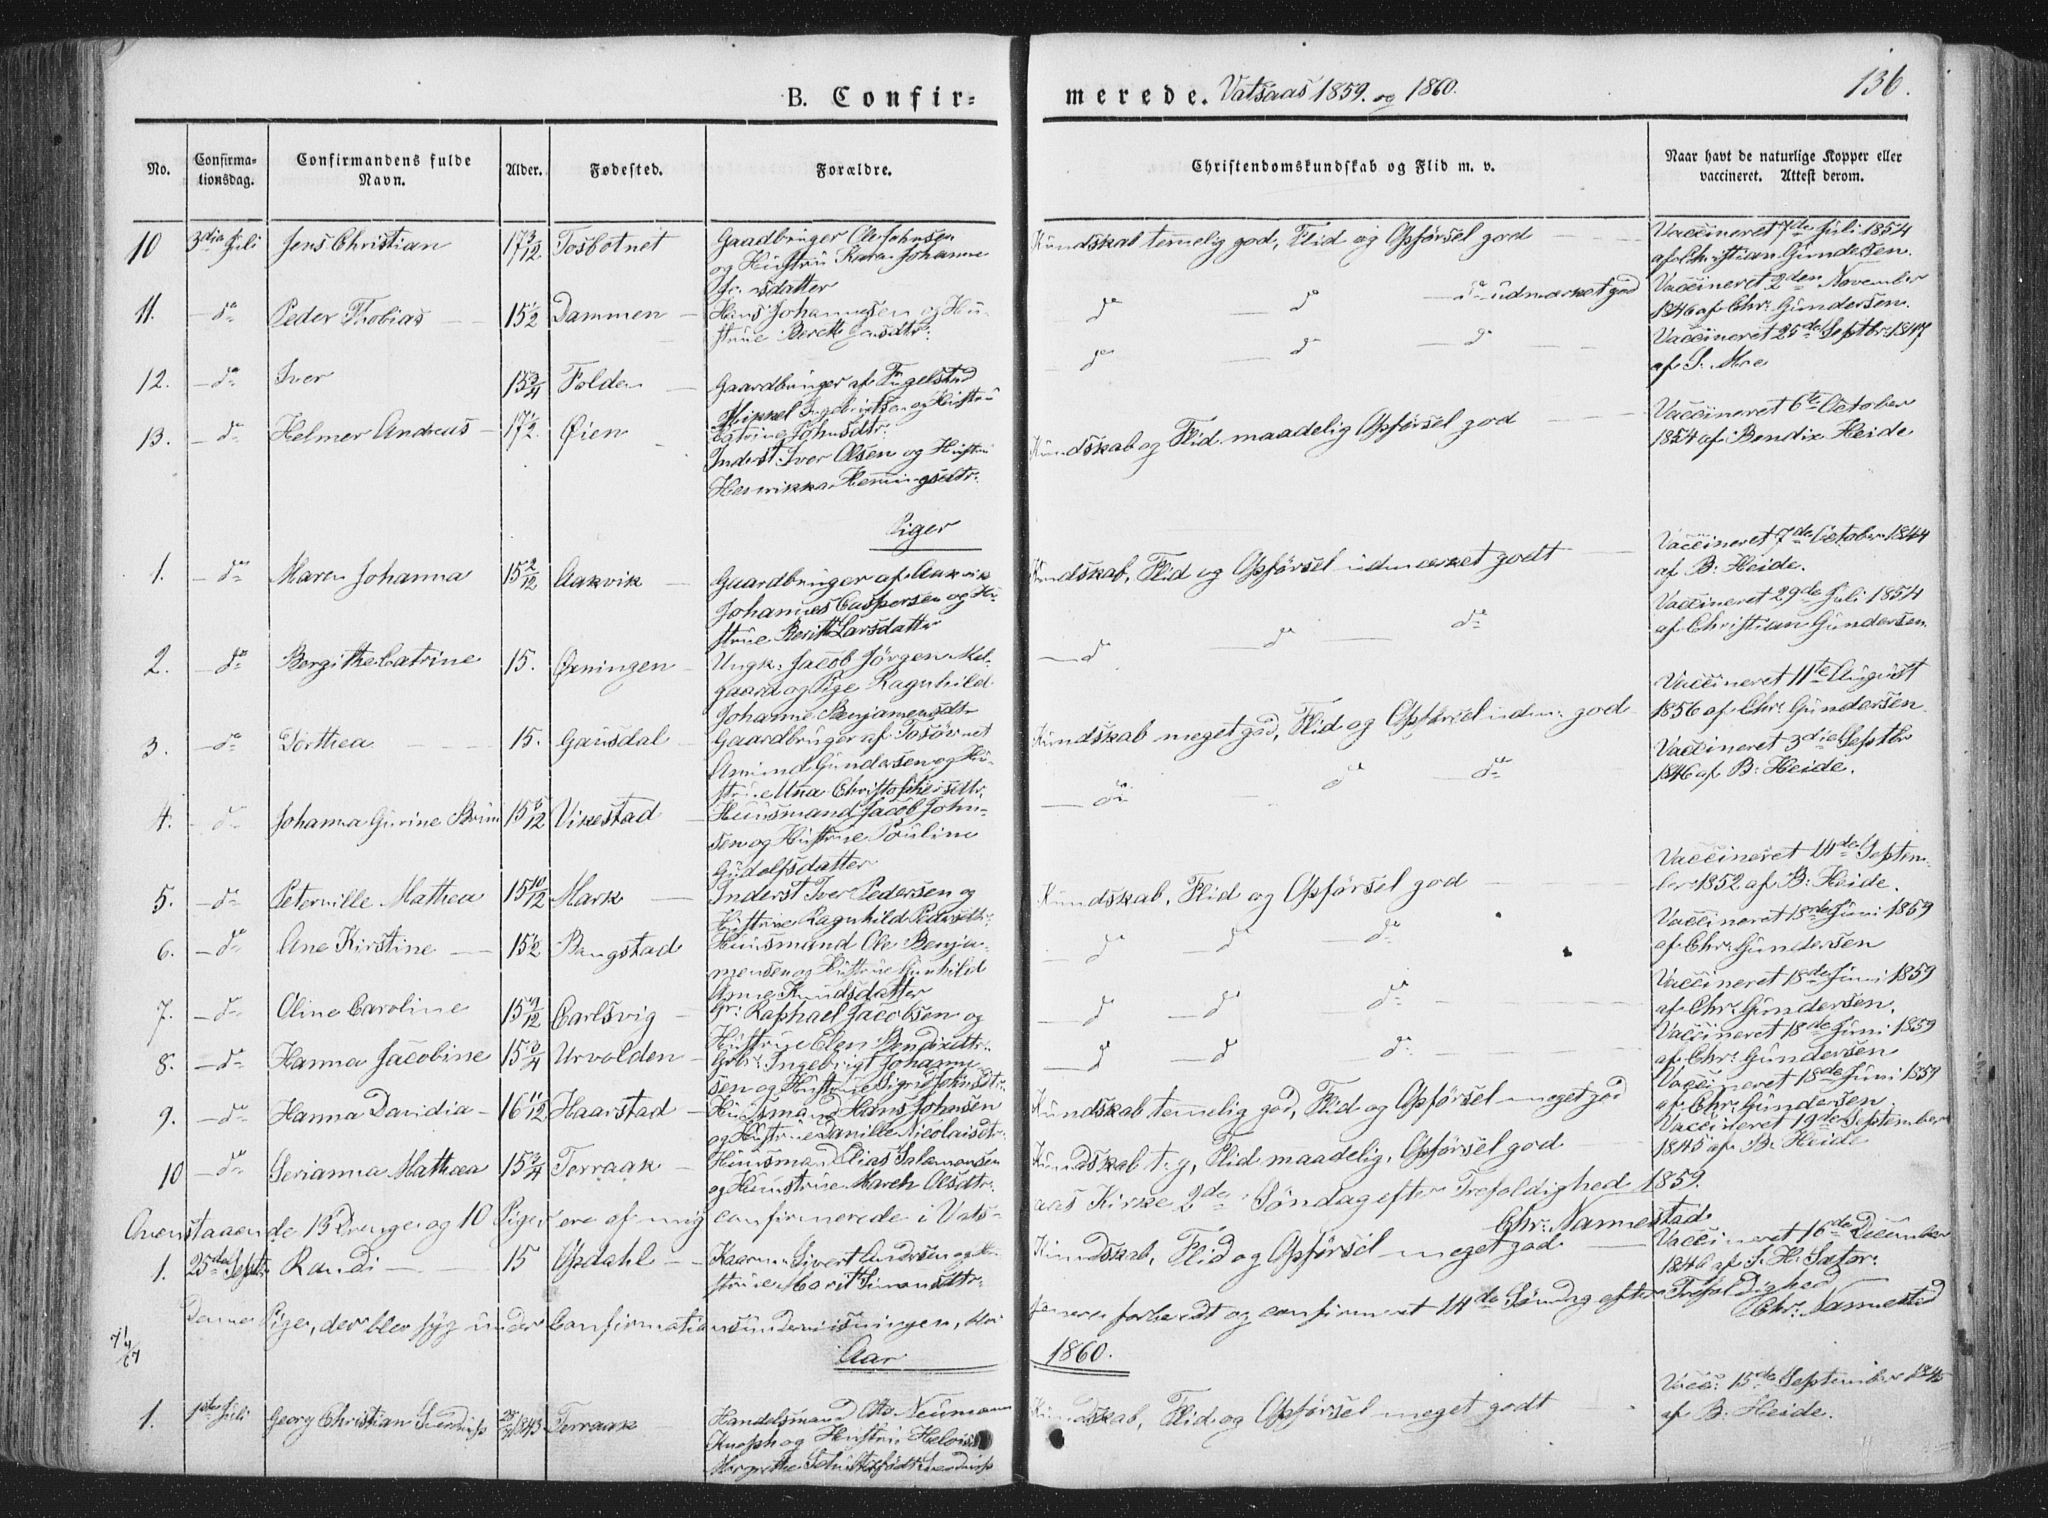 B. Confir-
merede. Vatsaas 1859. og 1860.
136.
No.
Confirma-
tionsdag.
Confirmandens fulde
Navn.
Alder.
Fødested.
Forældre.
Christendomskundskab og Flid m. v.
Naar havt de naturlige Kopper eller
vaccineret. Attest derom.
10 3die Juli Jens Christian 17 3/12 Tosbotnet
Gaadbruger Ole Johnsen
og Hustru Karen Johanna
Kundskab temmelig god, Flid og Opførsel god
Vaccineret 7de Juli 1854
af Christian Gundersen.
11. do Peder Thobias 15 1/2 Dammen
Hans Johannesen og Hu-
strue Berett Jensdtr:
do do do udmærket god
Vaccineret 2den November
1846 af Chr. Gundersen.
12. do Iver 15 3/4 Folden
Gaardbruger af
Mikkel Ingebrigtsen og Hustru
Catrine Johnsdtr:
do do do
Vaccineret 25de Septbr: 1847
af S. Moe
13. do Helmer Andreas 17 1/2 Øien
Inderst Iver Olsen og Hustru
Henrikka Hemingsdtr:
Kundskab og Flid maadelig Opførsel god
Vaccineret 6te October
1854 af Bendix Heide
Piger
1. do Maren Johanna 15 2/12 Aakvik
Gaardbruger af Aakvik
Johannes Caspersen og Hu-
strue Berith Larsdatter
Kundskab, Flid og Opførsel udmærket godt
Vaccineret 7de October 1844
af B: Heide.
2. do Bergithe Catrine 15. Øxningen
Ungk: Jacob Jørgen Mel-
gaard og Pige Ragnhild
Johanne Benjaminsdtr
do do do
Vaccineret 29de Juli 1854
af Christian Gundersen
3. do Dorthea 15. Gausdal
Gaardbruger af Tosbotnet
Amund Gundersen og Hu-
strue Anna Christophersdtr.
Kundskab meget god, Flid og Opførsel udm: god
Vaccineret 11te August
1856 af Chr. Gundersen
4. do Johanna Gurine 15 5/12 Vikestad
Huusmand Jacob John-
sen og Hustrue Pauline
Gudolfsdatter
do do do
Vaccineret 3die Septbr
1846 af B: Heide.
5. do Peterville Mathea 15 10/12 Mark
Inderst Iver Pedersen og
Hustrue Ragnhild Pedersdtr:
Kundskab, Flid og Opførsel god
Vaccineret 14de Septem-
ber 1852 af B: Heide.
6. do Ane Kirstine 15 1/2 Bangstad
Huusmand Ole Benja-
mensen og Hustrue Gunhild
Anne Knudsdatter
do do do
Vaccineret 18de Juni 1859
af Chr. Gundersen
7. do Oline Caroline 15 9/12 Carlsvig
Gr: Raphael Jacobsen og
Hustrue Elen Bendixdtr:
do do do
Vaccineret 18de Juni 1859
af Chr. Gundersen.
8. do Hanna Jacobine 15 3/4 Urvolden
Grbr: Ingebrigt Johanne-
sen og Hustrue Sigrid Johnsdtr:
do do do
Vaccineret 18de Juni 1859
af Chr: Gundersen
9. do Hanna Davidia 16 11/12 Haarstad
Huusmand Hans Johnsen
og Hustrue Danille Nicolaisdtr.
Kundskab temmelig god, Flid og Opførsel meget god
Vaccineret 18de Juni 1859
af Chr: Gundersen.
10 do Serianna Mathea 15 3/4 Terraak
Huusmand Elias Salamonsen
og Huustrue Mareh Olsdtr:
Kundskab t. g, Flid maadelig, Opførsel god
Vaccineret 19de September
1845 af B. Heide
Ovenstaaende 13 Drenge og 10 Piger ere af mig confirmerede i Vats-
aas Kirke 2de Søndag efter Trefoldighed 1859.
Chr: Nannestad
1. 25de Septr Randi 15 Opdahl
Kaarmand Sivert Andersen og Hu-
strue Marit Simonsdtr:
Kundskab, Flid og Opførsel meget god
Vaccineret 16de December
1846 af S. H. Sæter:
Denne Pige, der blev syg under Confirmationsundervisningen, blev
senere forberedt og confirmeret 14de Søndag efter Trefoldighed
Chr: Nannestad
Aar
1860.
1. 1ste Juli Georg Christian 1843 Terraak
Handelsmand Otto Neumann
Knoph og Hustru Heloise
Margrethe Schultz født
Kundskab, Flid og Opførsel meget godt
Vacc: 15de September 1845
af B. Heide.